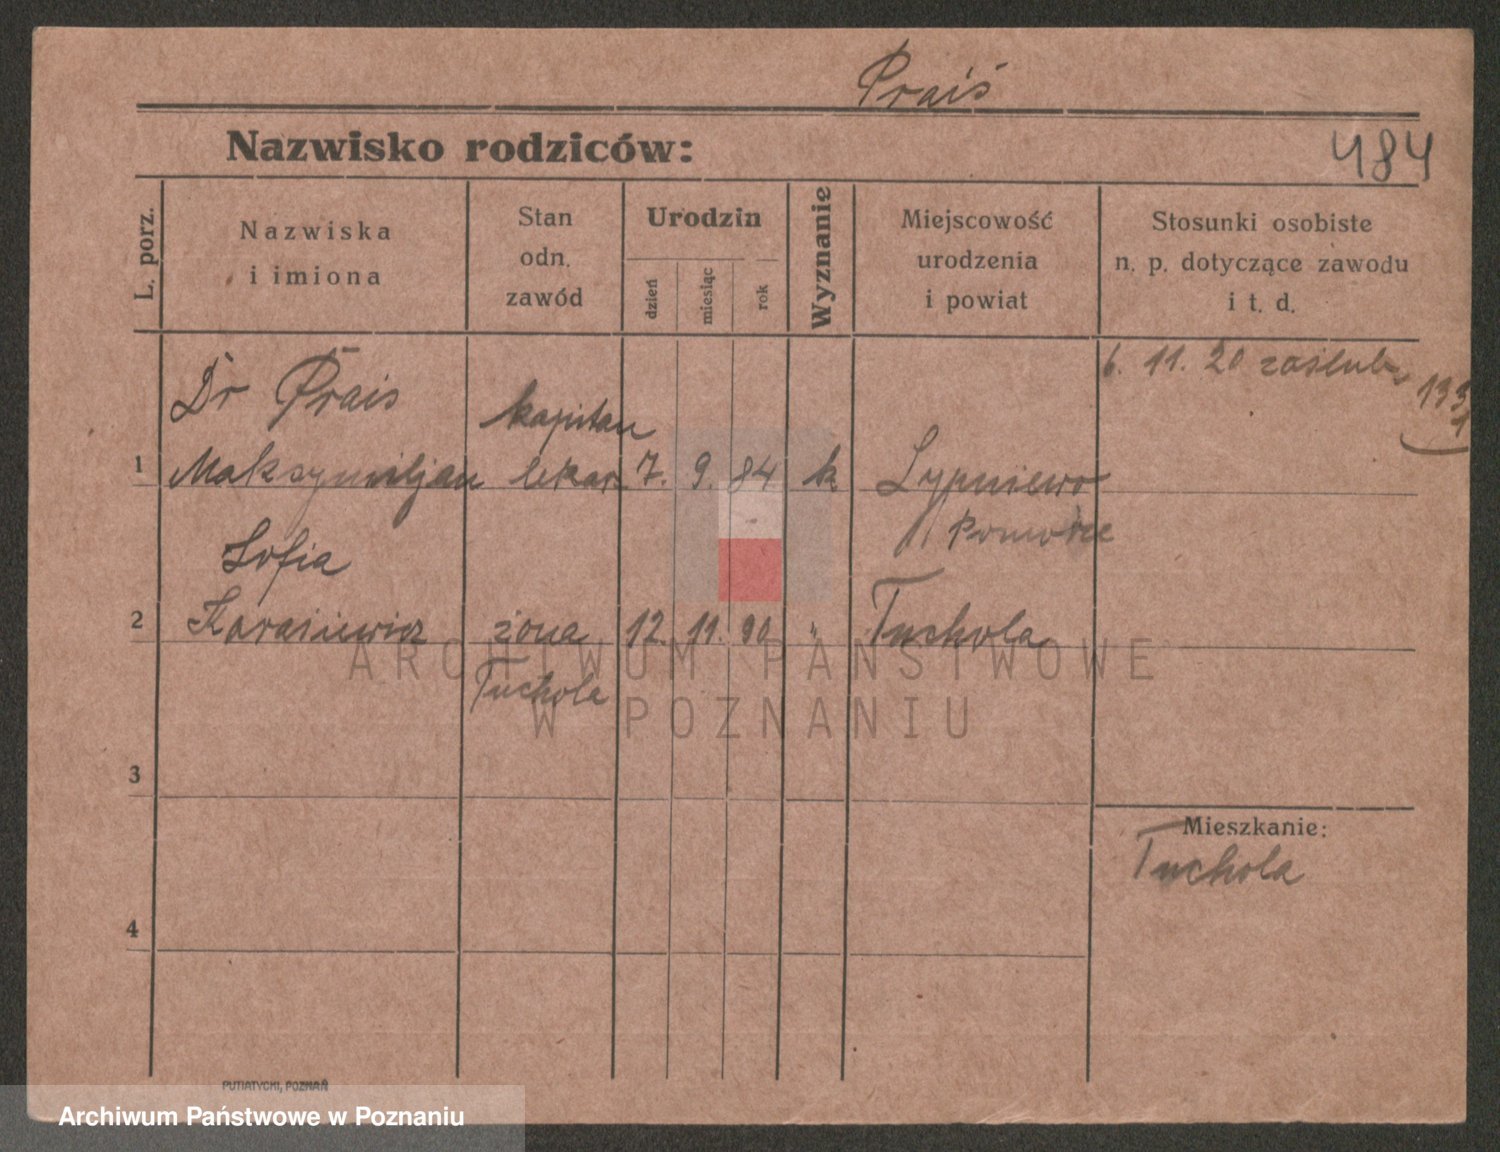 Prais
Nazwisko rodziców:
484
L. porz.
Nazwiska
i imiona
Stan
odn.
zawód
Urodzin
dzień
miesiąc
rok
Wyznanie
Miejscowość
urodzenia
i powiat
Stosunki osobiste
n. p. dotyczące zawodu
i t. d.
6. 11. 20 zaślub.
Dr Prais
kapitan
1 Maksymiljan lekarz 7. 9. 84 k. Lypniewo
Pomorze
Zofia
2 Karasiewicz żona 12. 11. 90 " Tuchola
Tuchola
ARCHIWUM PAŃSTWOWE
W POZNANIU
3
Mieszkanie:
Tuchola
4
PUTIATYCKI, POZNAŃ
Archiwum Państwowe w Poznaniu